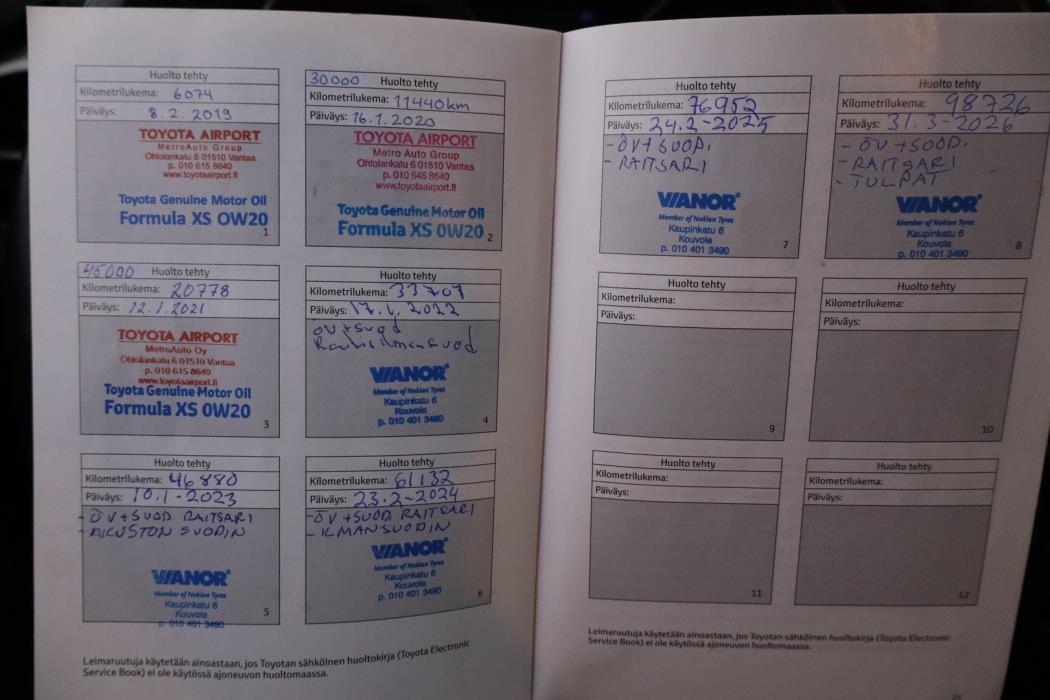 Huolto tehty
Kilometrilukema: 6074
Päiväys: 8.2.2019
TOYOTA AIRPORT
MetroAuto Group
Ohtolankatu 6 01510 Vantaa
p. 010 615 8640
www.toyotaairport.fi
Toyota Genuine Motor Oil
Formula XS 0W20
1
30000 Huolto tehty
Kilometrilukema: 11440km
Päiväys: 16.1.2020
TOYOTA AIRPORT
Metro Auto Group
Ohtolankatu 6 01510 Vantaa
p. 010 615 8640
www.toyotaairport.fi
Toyota Genuine Motor Oil
Formula XS 0W20
2
45000 Huolto tehty
Kilometrilukema: 20778
Päiväys: 12.1.2021
TOYOTA AIRPORT
MetroAuto Oy
Ohtolankatu 6 01510 Vantaa
p. 010 615 8640
www.toyotaairport.fi
Toyota Genuine Motor Oil
Formula XS 0W20
3
Huolto tehty
Kilometrilukema: 33709
Päiväys: 17.1.2022
ÖV+suod
VIANOR
Member of Nokian Tyres
Kaupinkatu 6
Kouvola
p. 010 401 3490
4
Huolto tehty
Kilometrilukema: 46880
Päiväys: 10.1-2023
- ÖV+SUOD. RAITSARI
SUODIN
VIANOR
Member of Nokian Tyres
Kaupinkatu 6
Kouvola
p. 010 401 3490
5
Huolto tehty
Kilometrilukema: 61132
Päiväys: 23.2-2024
- ÖV+SUOD. RAITSARI
- ILMANSUODIN
VIANOR
Member of Nokian Tyres
Kaupinkatu 6
Kouvola
p. 010 401 3490
6
Leimaruutuja käytetään ainoastaan, jos Toyotan sähköinen huoltokirja (Toyota Electronic
Service Book) ei ole käytössä ajoneuvon huoltomaassa.
Huolto tehty
Kilometrilukema: 76952
Päiväys: 24.2-2025
- ÖV+SUOD.
- RAITSARI
VIANOR
Member of Nokian Tyres
Kaupinkatu 6
Kouvola
p. 010 401 3490
7
Huolto tehty
Kilometrilukema: 98726
Päiväys: 31.3-2026
- ÖV+SOOD.
- RAITSARI
- TULPAT
VIANOR
Member of Nokian Tyres
Kaupinkatu 6
Kouvola
p. 010 401 3490
8
Huolto tehty
Kilometrilukema:
Päiväys:
9
Huolto tehty
Kilometrilukema:
Päiväys:
10
Huolto tehty
Kilometrilukema:
Päiväys:
11
Huolto tehty
Kilometrilukema:
Päiväys:
12
Leimaruutuja käytetään ainoastaan, jos Toyotan sähköinen huoltokirja (Toyota Electronic
Service Book) ei ole käytössä ajoneuvon huoltomaassa.